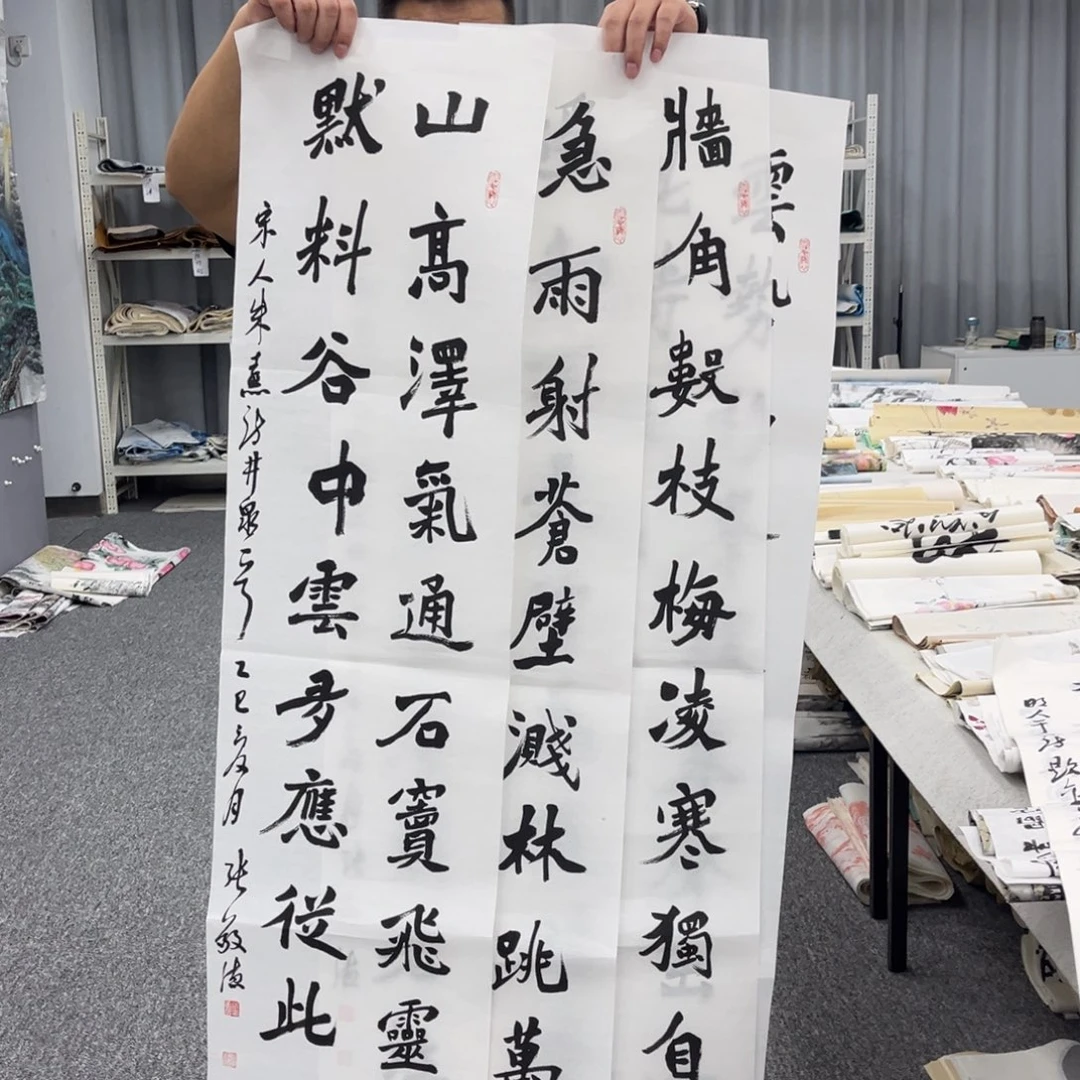 牆角數枝梅凌寒獨自
急雨射蒼壁濺林跳萬
山高澤氣通石竇飛靈
默料谷中雲多應從此
宋人朱熹诗井泉一首 乙巳夏月 张